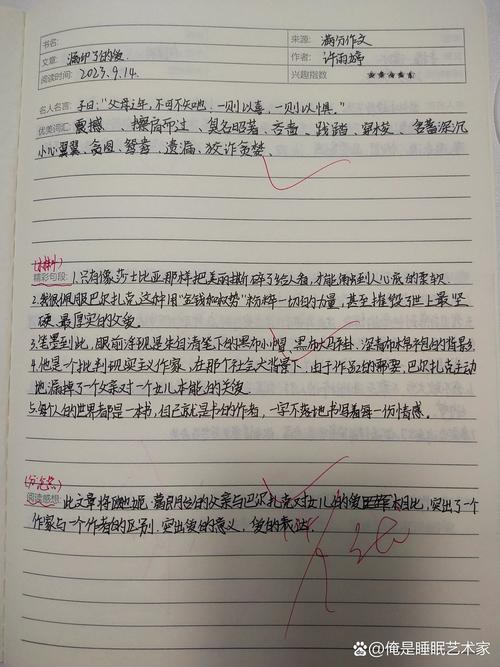 书名:
来源: 满分作文
文章: 漏印了的爱
作者: 许雨婷
阅读时间: 2023.9.14.
兴趣指数 ★★★★★
名人名言: 子曰:“父母之年,不可不知也,一则以喜,一则以惧。”
优美词汇: 震撼、擦肩而过、臭名昭著、吝啬、
小心翼翼、贪图、 遗漏、狡诈贪婪、
精彩句段: 1.只有像莎士比亚那样把美丽撕碎了给人看,才能触到人心底的柔软
2.我很佩服巴尔扎克,这种用“金钱和权势”粉粹一切的力量,甚至摧毁了世上最坚
硬、最厚实的父爱。
3.笔墨到此,眼前浮现是朱自清笔下的黑布小帽、黑布大马褂、深青布棉袍的背影
4.他是个批判现实主义作家,在那个社会大背景下,由于作品的需要,巴尔扎克主动
地漏掉了一个父亲对一个女儿本能的关爱。
5.每个人的世界都是一本书,自己就是书的作者,一字不落地书写着每一份情感。
阅读感想: 此文章将 葛朗台的父亲与巴尔扎克对女儿的爱 相比,突出了一个
作家与一个作者的区别,突出爱的意义,爱的表达
@俺是睡眠艺术家